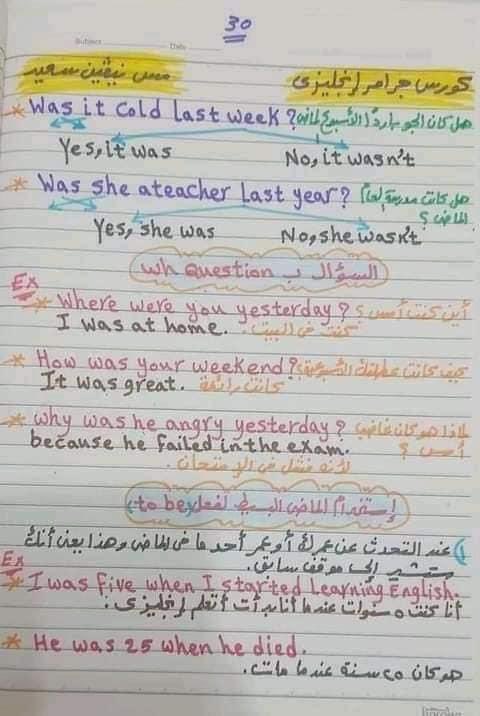 30
Subject Date
كورس جرامر إنجليزى
مس نيڤين سعيد
Was it cold last week? هل كان الجو بارداً الأسبوع الماضى؟
Yes, it was No, it wasn't
Was she ateacher last year? هل كانت مدرسة العام
الماضى؟
Yes, she was No, she wasn't
السؤال ب wh question
Ex
Where were you yesterday? أين كنت أمس؟
I was at home. كنت فى البيت.
How was your weekend? كيف كانت عطلتك الأسبوعية؟
It was great. كانت رائعة
why was he angry yesterday? لماذا هو كان غاضب
because he failed in the exam. أمس؟
لأنه فشل فى الإمتحان.
إستخدام الماضى البسيط لفعل (to be)
1) عند التحدث عن عمرك أو عمر أحد ما فى الماضى وهذا يعنى أنك
ستشير إلى موقف سابق.
Ex
I was five when I started learning English.
أنا كنت ٥ سنوات عندما أنا بدأت أتعلم إنجليزى.
He was 25 when he died.
هو كان ٢٥ سنة عندما مات.